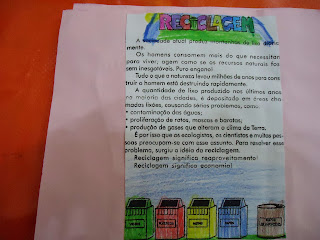 RECICLAGEM
A sociedade atual produz montanhas de lixo diaria-
mente.
Os homens consomem mais do que necessitam
para viver; agem como se os recursos naturais fos-
sem inesgotáveis. Puro engano!
Tudo o que a natureza levou milhões de anos para cons-
truir o homem está destruindo rapidamente.
A quantidade de lixo produzido nos últimos anos
na maioria das cidades, é depositado em áreas cha-
madas lixões, causando sérios problemas, como:
• contaminação das águas;
• proliferação de ratos, moscas e baratas;
• produção de gases que alteram o clima da Terra.
É por isso que os ecologistas, os cientistas e muitas pes-
soas preocupam-se com esse assunto. Para resolver esse
problema, surgiu a idéia da reciclagem.
Reciclagem significa reaproveitamento!
Reciclagem significa economia!